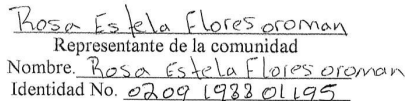 Rosa Estela Flores oroman
Representante de la comunidad
Nombre. Rosa Estela Flores oroman
Identidad No. 0209 1983 01195